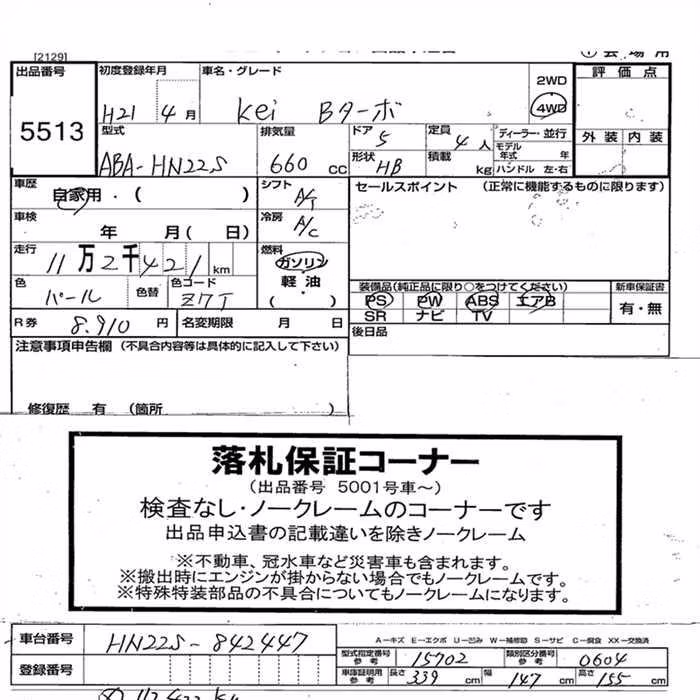 [2129]
出品番号 5513
初度登録年月 H21 4月
車名・グレード Kei Bターボ
2WD
4WD
評価点
型式 ABA-HN22S
排気量 660cc
ドア 5
定員 4人
形状 HB
積載 kg
ディーラー・並行
モデル年式 年
ハンドル 左・右
外装 内装
車歴 自家用・( )
シフト A/T
セールスポイント (正常に機能するものに限ります)
車検 年 月( 日)
冷房 A/C
走行 11万2千421km
燃料 ガソリン
軽油
( )
色 パール
色替
色コード Z7T
装備品(純正品に限り○をつけてください)
新車保証書
PS PW ABS エアB
SR ナビ TV
有・無
R券 8.910円
名変期限 月 日
後日品
注意事項申告欄(不具合内容等は具体的に記入して下さい)
修復歴 有 (箇所 )
落札保証コーナー
(出品番号 5001号車~)
検査なし・ノークレームのコーナーです
出品申込書の記載違いを除きノークレーム
※不動車、冠水車など災害車も含まれます。
※搬出時にエンジンが掛からない場合でもノークレームです。
※特殊特装部品の不具合についてもノークレームになります。
車台番号 HN22S-842447
A-キズ E-エクボ U-凹み W-補修跡 S-サビ C-腐食 XX-交換済
型式指定番号 参考 15702
類別区分番号 参考 0604
登録番号
車庫証明用 参考 長さ 339cm 幅 147cm 高さ 155cm